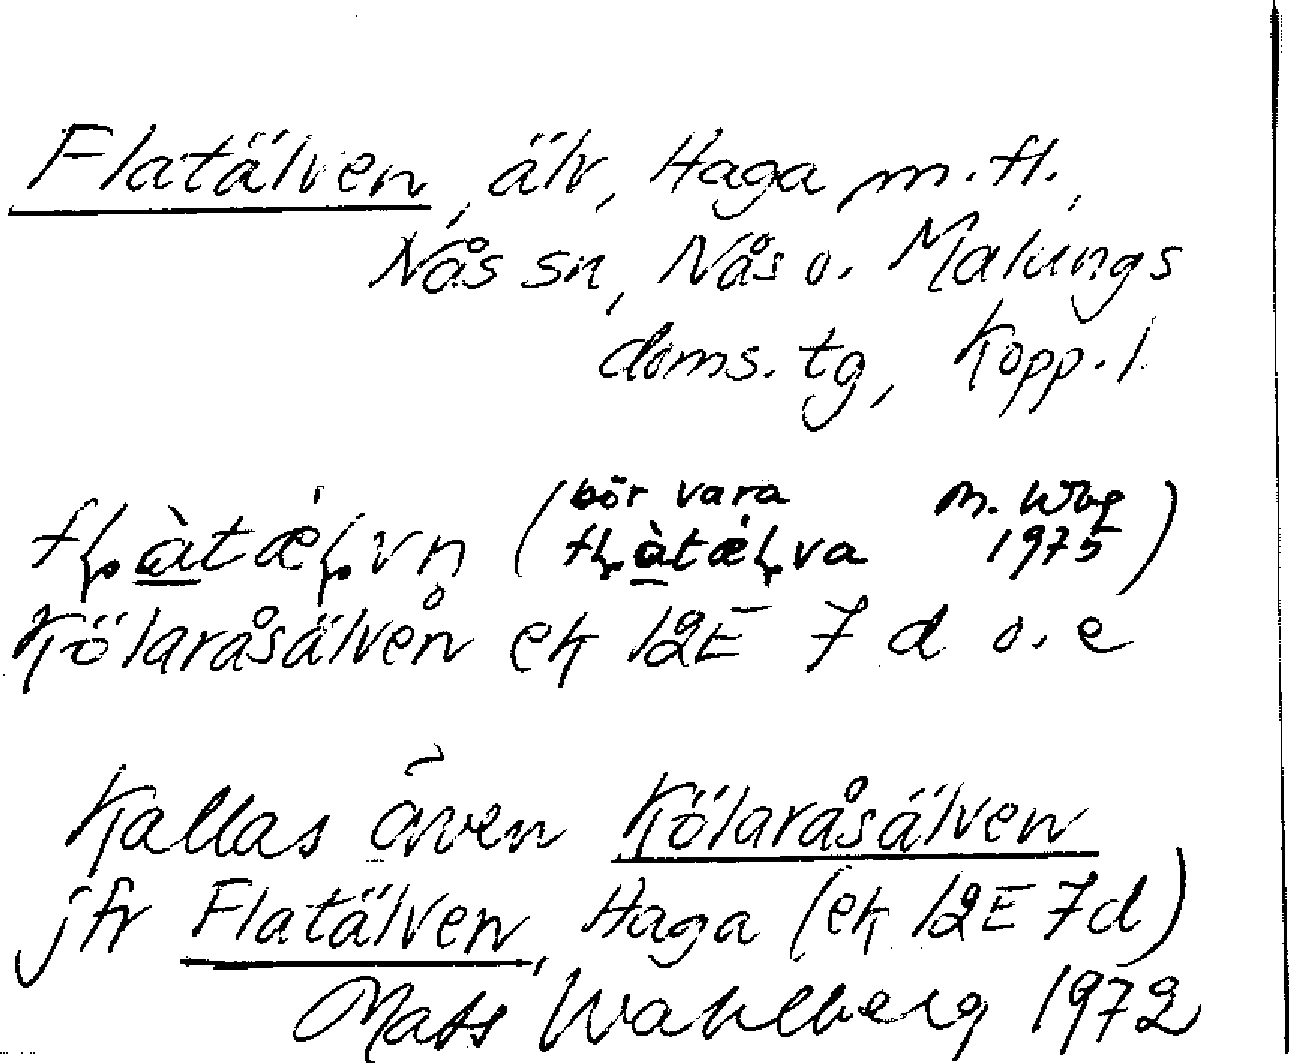 Flatälven, älv, Haga m.fl.,
Nås sn, Nås o. Malungs
doms. tg, Kopp. l.
fḷàtǽḷvn (bör vara fḷàtǽḷva M. Wbg 1975)
Kölaråsälven ek 12E 7 d o. e
Kallas även Kölaråsälven
jfr Flatälven, Haga (ek 12E 7d)
Mats Wahlberg 1972